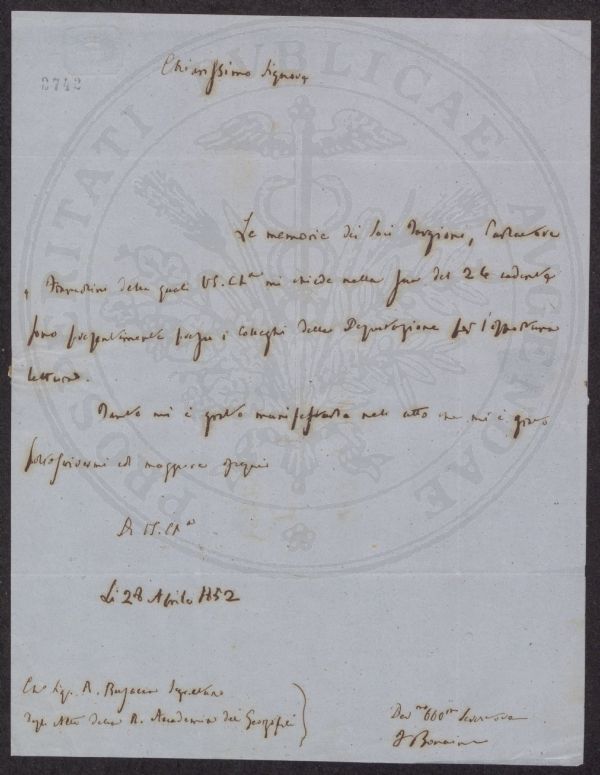 2742
Chiarissimo Signore
Le memorie dei Soci
delle quali VS. Ch.ma mi chiede nella sua del 26 cadente
sono presentemente presso i Colleghi della Deputazione per l'opportuna
lettura.
Tanto mi è grato manifestarle nell'atto che mi è grato
sottoscrivermi col maggiore ossequio
Di VS. Ch.ma
Li 28 Aprile 1852
Ch. Sig. R. Segretario
degli Atti della R. Accademia dei Georgofili
Dev.mo Obb.mo Servitore
PROSPERITATI PUBLICAE AUGENDAE